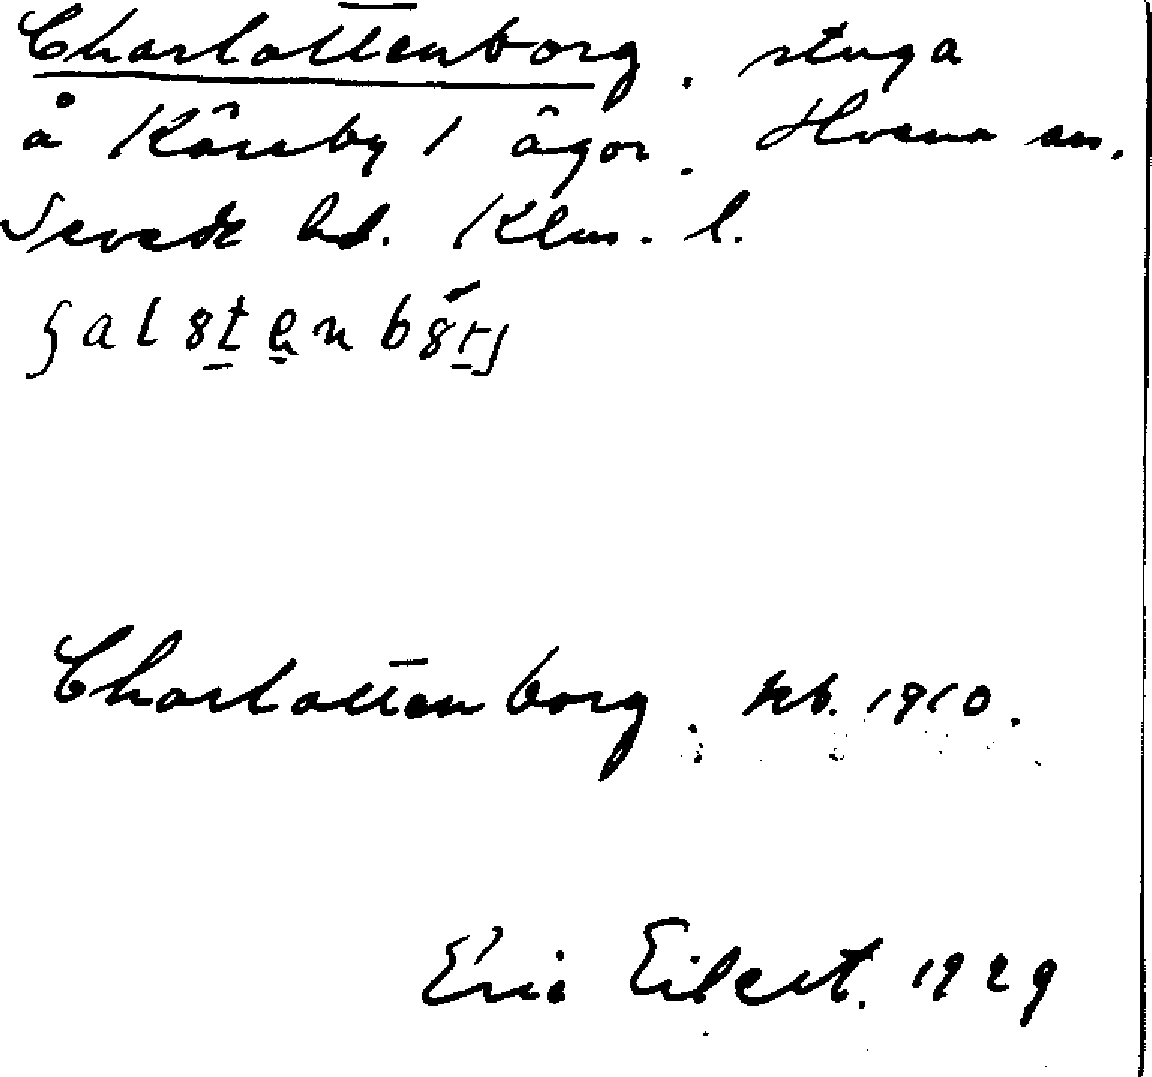 Charlottenborg. stuga
å Kåreby 1 ägor. Hvena sn.
Sevede hd. Klm. l.
Charlottenborg. kb. 1910.
Eric Eilert. 1929